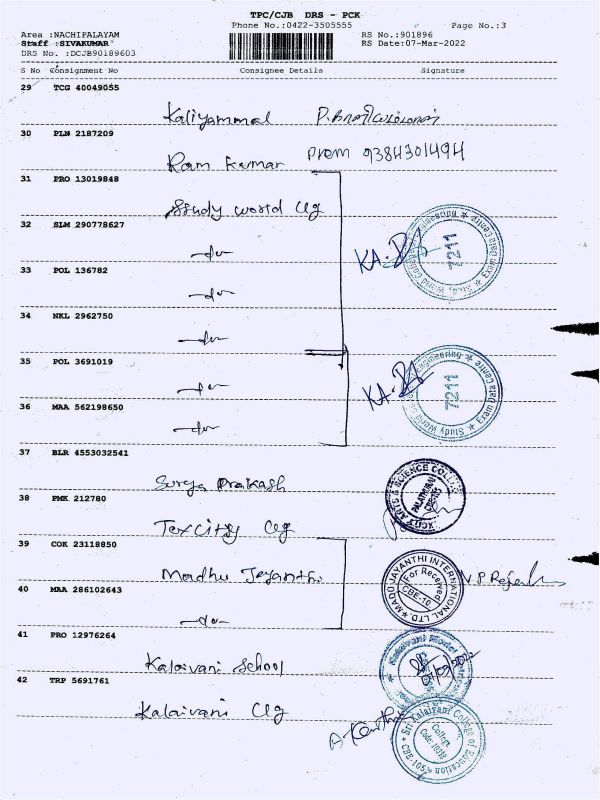 TPC/CJB DRS - PCK
Phone No.:0422-3505555 Page No.:3
Area :NACHIPALAYAM RS No.:901896
Staff :SIVAKUMAR RS Date:07-Mar-2022
DRS No. :DCJB90189603
S No Consignment No Consignee Details Signature
29 TCG 40049055
Kaliyammal
30 PLN 2187209
Ram Kumar Prem 9384301494
31 PRO 13019848
Study world Clg
32 SLM 290778627
-do-
KA.
7211
33 POL 136782
-do-
34 NKL 2962750
-do-
35 POL 3691019
-do-
KA.
7211
36 MAA 562198650
-do-
37 BLR 4553032541
Surya Prakash
38 PMK 212780
Texcity Clg
39 COK 23118850
Madhu Jeyanthi
MADU JAYANTHI INTERNATIONAL LTD.
For Received
CBE-10
40 MAA 286102643
-do-
41 PRO 12976264
Kalaivani School
42 TRP 5691761
Kalaivani Clg
Sri Kalaivani College of Education
College Code:10318
CBE-105